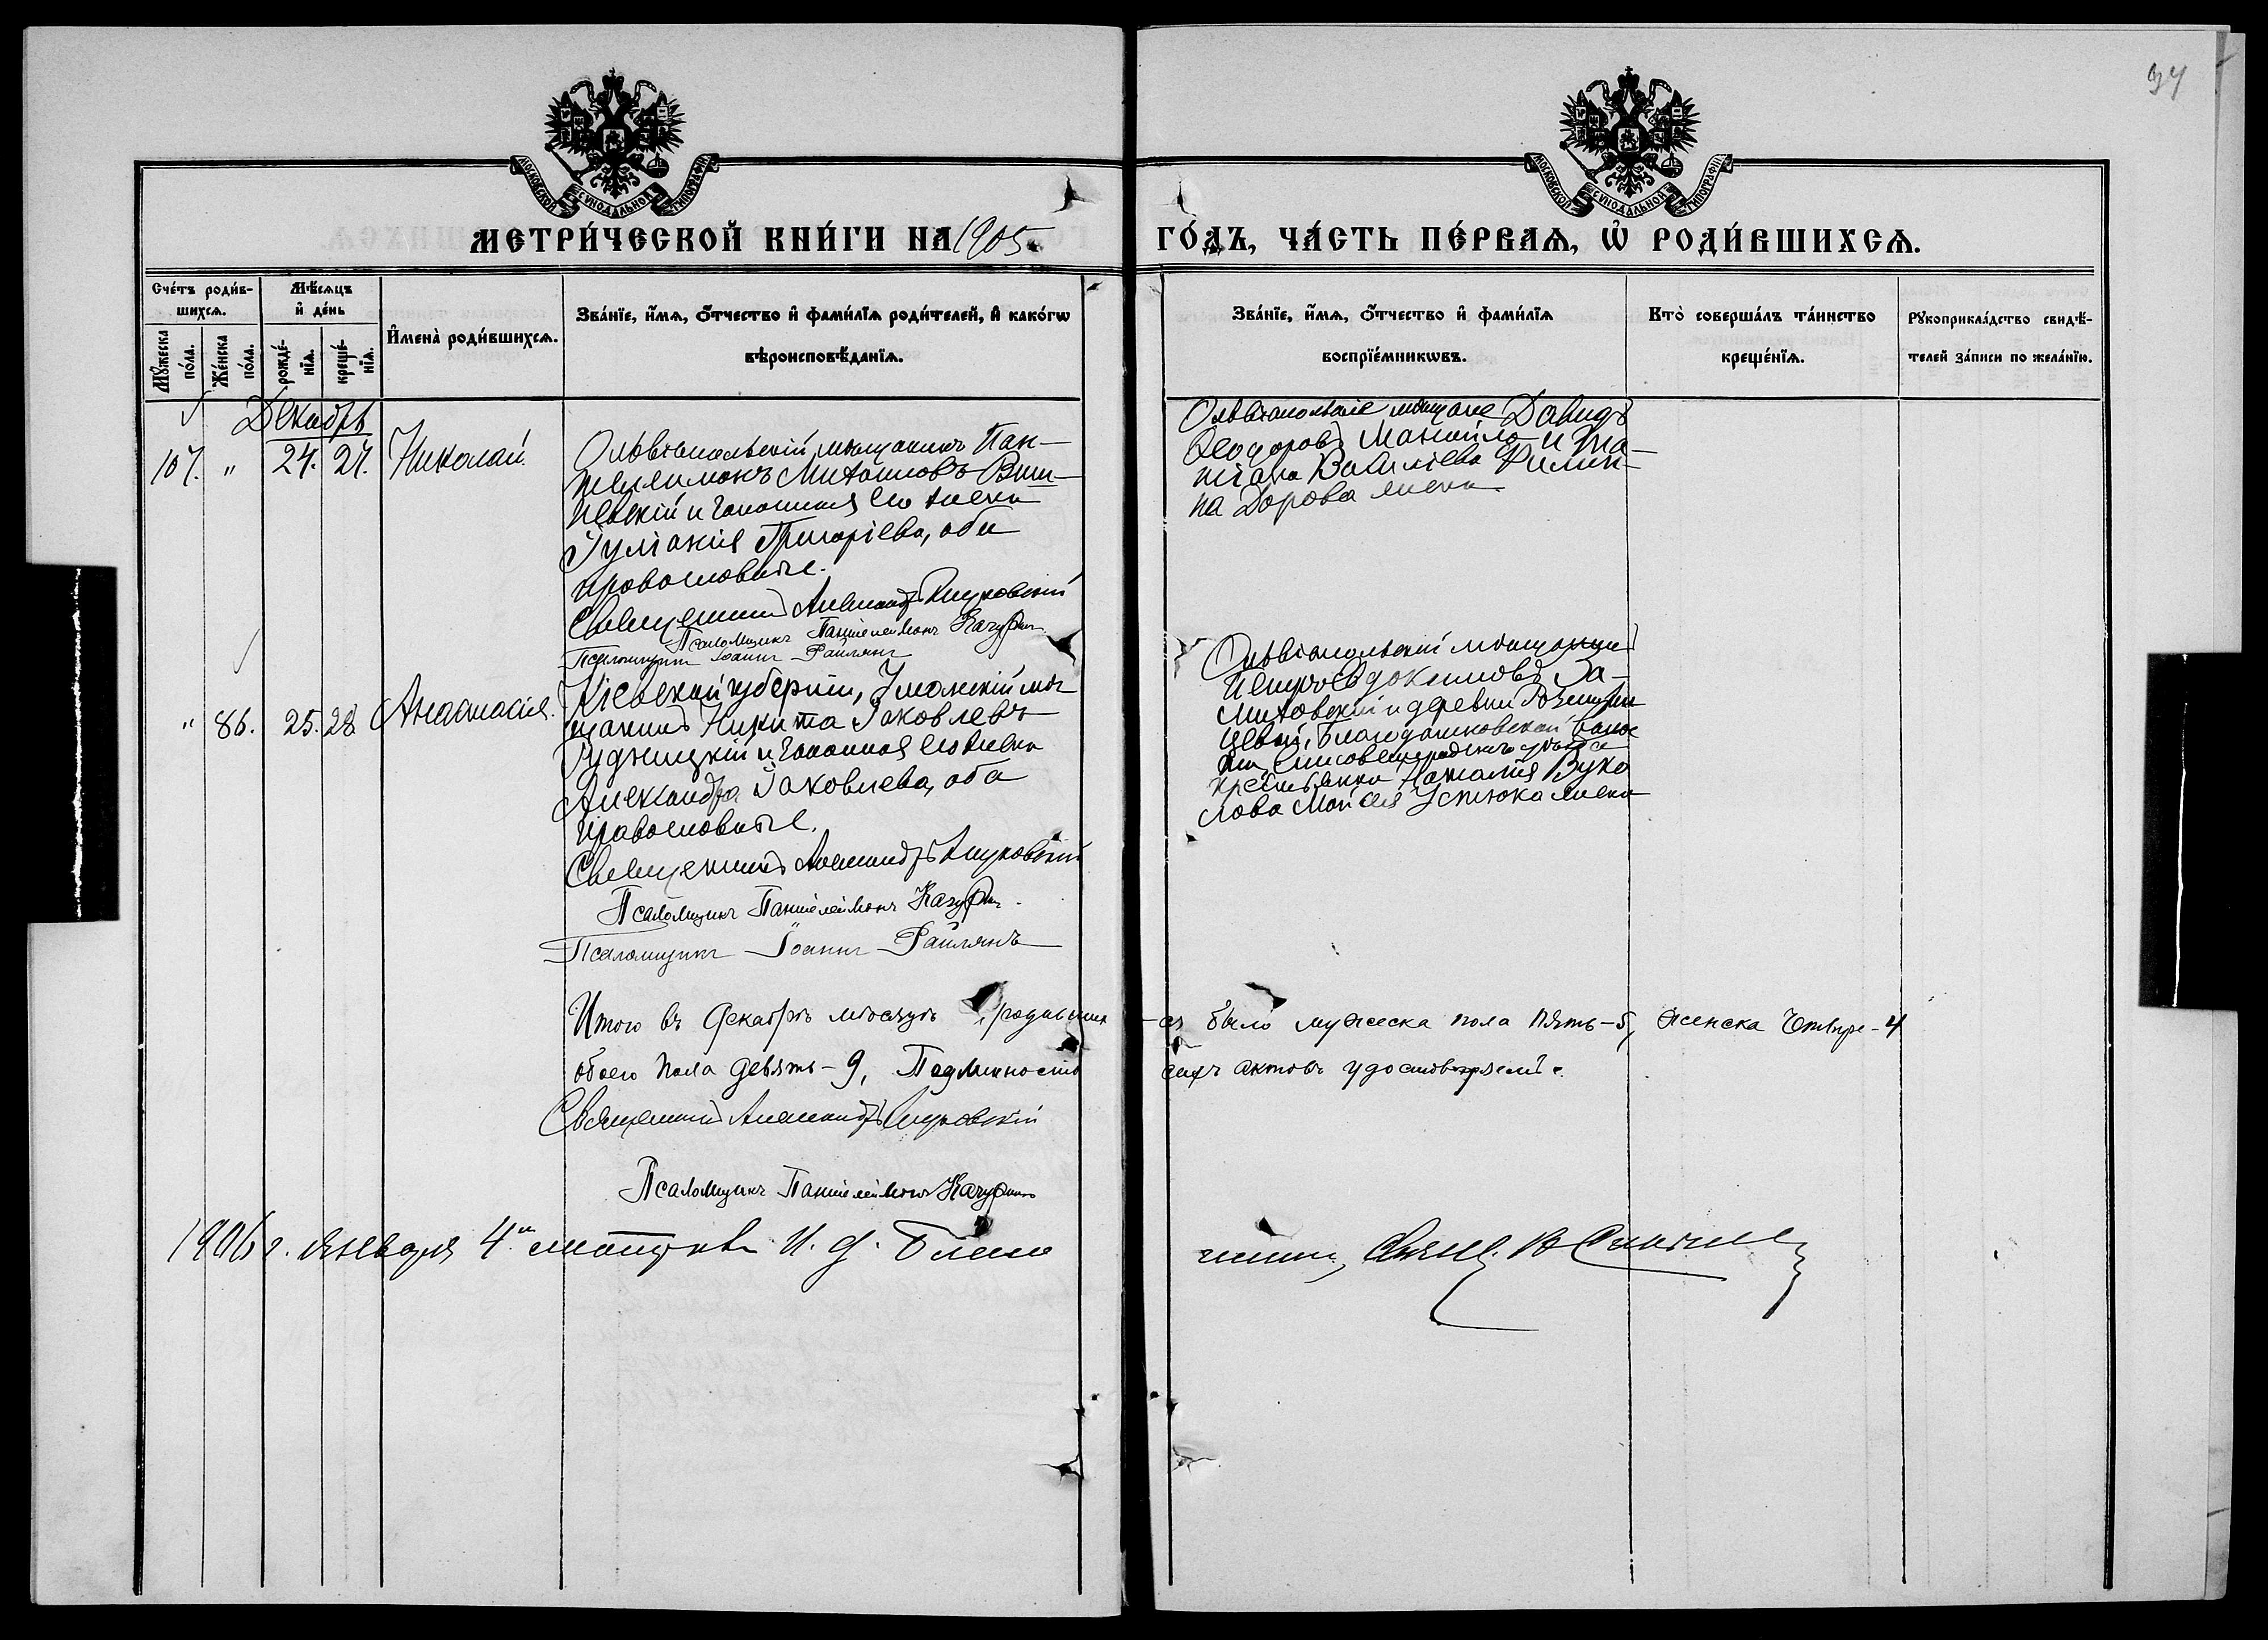 94
МОСКОВСКОЙ СѴНОДАЛЬНОЙ ТИПОГРАФІИ
МОСКОВСКОЙ СѴНОДАЛЬНОЙ ТИПОГРАФІИ
МЕТРИ́ЧЕСКОЙ КНИ́ГИ НА 1905
ГО́ДЪ, ЧА́СТЬ ПЕ́РВАѦ, Ѿ РОДИ́ВШИХСѦ.
Сче́тъ роди́в-
шихсѧ.
Мѹ́жеска по́ла.
Же́нска по́ла.
Мѣ́сѧцъ и҆ де́нь
рожде́-нїѧ.
креще́-нїѧ.
И҆мена̀ роди́вшихсѧ.
Зва́нїе, и҆́мѧ, ѻ҆́тчество и҆ фами́лїѧ роди́телей, и҆ како́гѡ
вѣроисповѣ́данїѧ.
Зва́нїе, и҆́мѧ, ѻ҆́тчество и҆ фами́лїѧ
воспрїе́мникѡвъ.
Кто̀ соверша́лъ та́инство
креще́нїѧ.
Рꙋкоприкла́дство свидѣ́-
телей за́писи по жела́нїю.
Декабрь
107. " 24. 27. Николай.
Ольвіопольскій мѣщанинъ Пан-
телеимонъ Митоновъ Виш-
невскій и законная его жена
Іуліанія Григоріева, оба
православные.
Священникъ Александръ
Псаломщикъ Пантелеймонъ
Псаломщикъ Іоаннъ Раилянъ
Ольвіопольскіе мѣщане Давидъ
Ѳеодоровъ Манойло и Та-
тіана Василіева Филип-
па Дорова жена.
" 86. 25. 28 Анастасія.
Кіевской губерніи, Уманскій мѣ-
щанинъ Никита Іаковлевъ
Рудницкій и законная его жена
Александра Іаковлева, оба
православные.
Священникъ Александръ
Псаломщикъ Пантелеймонъ
Псаломщикъ Іоаннъ Раилянъ
Ольвіопольскій мѣщанинъ
Петръ Евдокимовъ За-
и деревни
Елисаветградскаго уѣзда
крестьянка Наталія Вуко-
лова Моисея Устюка жена
Итого въ Декабрѣ мѣсяцѣ родивших-
ся было мужеска пола пять-5, женска Четыре-4
обоего пола девять-9, Подлинность
сихъ актовъ удостовѣряемъ.
Священникъ Александръ
Псаломщикъ Пантелеймонъ
1906 г. января 4.